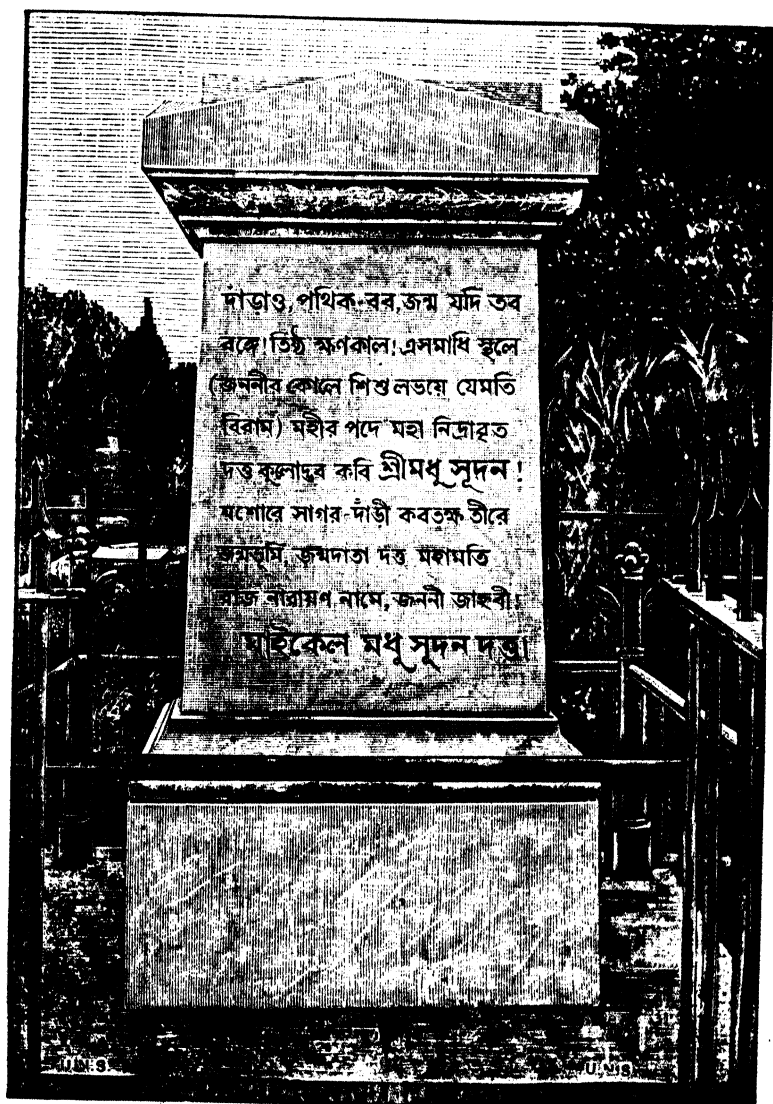 দাঁড়াও, পথিক-বর, জন্ম যদি তব
বঙ্গে! তিষ্ঠ ক্ষণকাল! এসমাধি স্থলে
(জননীর কোলে শিশু লভয়ে যেমতি
বিরাম) মহীর পদে মহা নিদ্রাবৃত
দত্ত কুলোদ্ভব কবি শ্রীমধুসূদন!
যশোরে সাগর-দাঁড়ী কবতক্ষ তীরে
জন্মভূমি, জন্মদাতা দত্ত মহামতি
রাজ নারায়ণ নামে, জননী জাহ্নবী!
মাইকেল মধুসূদন দত্ত।
U.N.S. U.N.S.